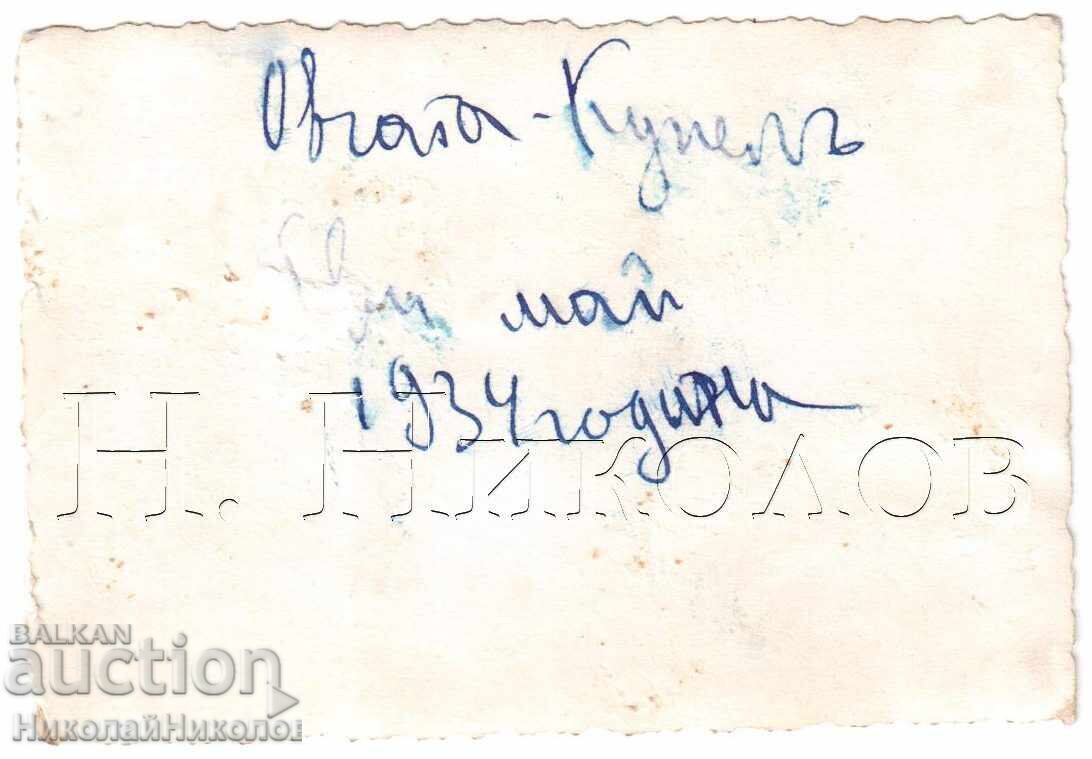 Овча - Купель
май
1934 година
Н. Николов
BALKAN
auction
НиколайНиколов